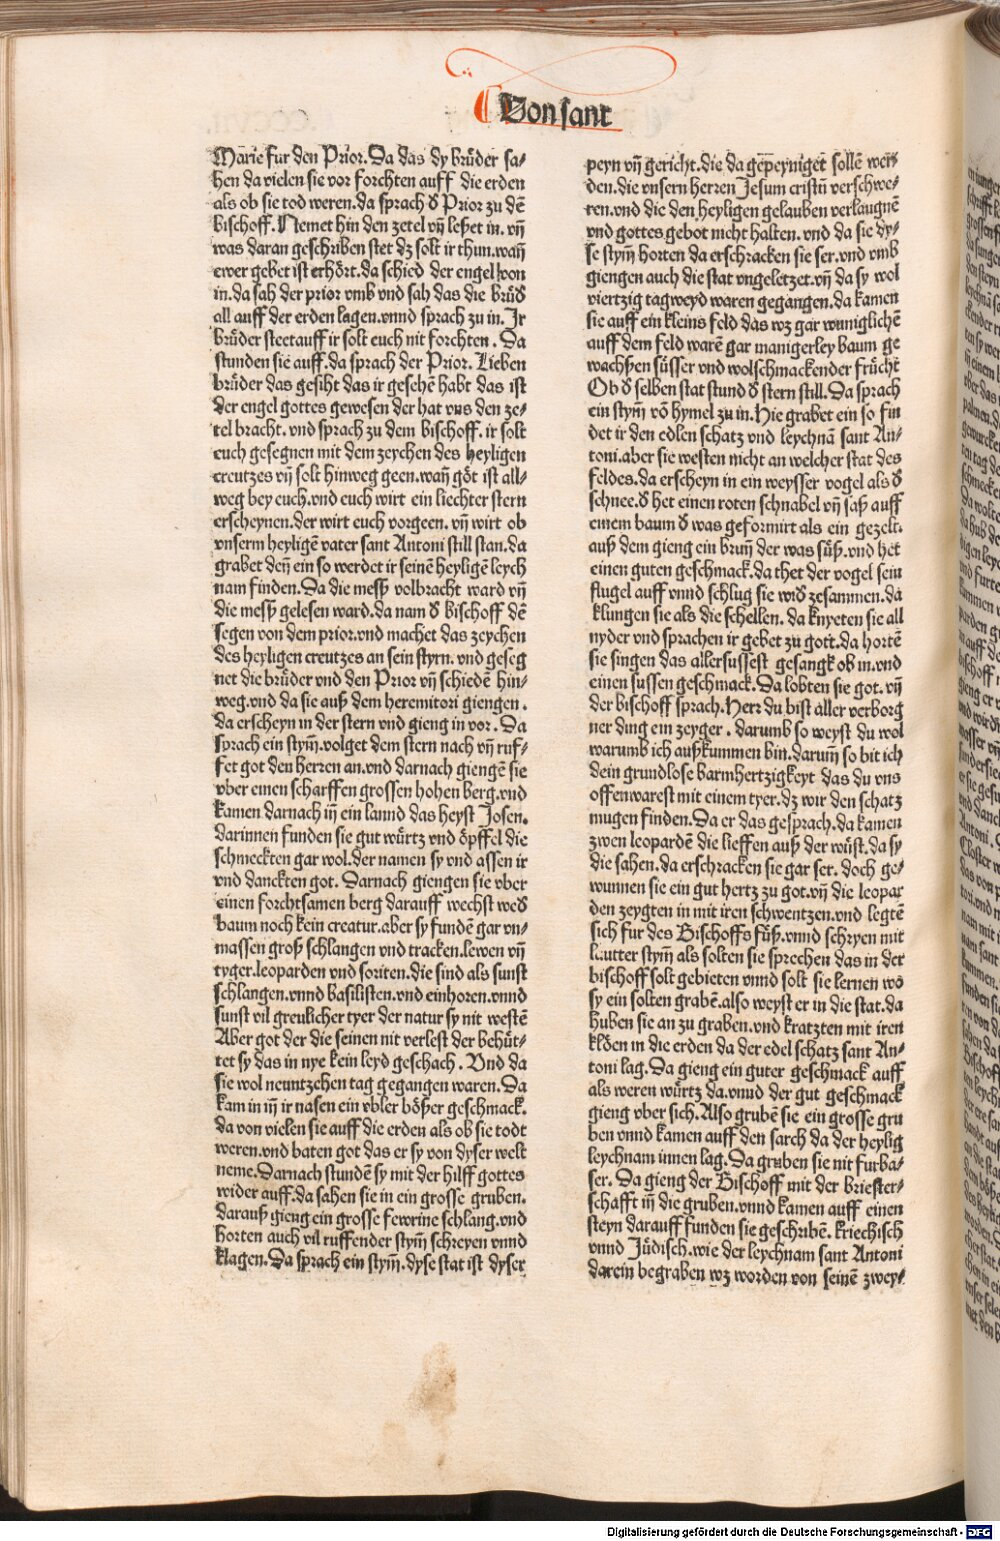 Von sant
Marie fur den Prior. Da das dy brüder sa-
hen da vielen sie vor forchten auff die erden
als ob sie tod weren. da sprach d̕ Prior zu dē
bischoff. Nemet hin den zetel vn̄ leßet in. vn̄
was daran geschriben stet dz solt ir thun. wan̄
ewer gebet ist erhört. da schied der engel von
in. da sah der prior vmb vnd sah das die brüd̕
all auff der erden lagen. vnnd sprach zu in. Ir
brüder steet auff ir solt euch nit forchten. Da
stunden sie auff. da sprach der Prior. Lieben
brüder das gesiht das ir gesehē habt das ist
der engel gottes gewesen der hat vns den ze-
tel bracht. vnd sprach zu dem bischoff. ir solt
euch gesegnen mit dem zeychen des heyligen
creutzes vn̄ solt hinweg geen. wan̄ got ist all-
weg bey euch. vnd euch wirt ein liechter stern
erscheynen. der wirt euch vorgeen. vn̄ wirt ob
vnserm heyligē vater sant Antoni still stan. da
grabet den̄ ein so werdet ir seinē heyligē leych
nam finden. Da die mesß volbracht ward vn̄
die mesß gelesen ward. da nam d̕ bischoff dē
segen von dem prior. vnd machet das zeychen
des heyligen creutzes an sein styrn. vnd geseg
net die brüder vnd den Prior vn̄ schiedē hin-
weg. vnd da sie auß dem heremitori giengen.
da erscheyn in der stern vnd gieng in vor. Da
sprach ein stym̄. volget dem stern nach vn̄ ruf-
fet got den herren an. vnd darnach giengē sie
vber einen scharffen grossen hohen berg. vnd
kamen darnach in̄ ein lannd das heyst Josen.
darinnen funden sie gut würtz vnd öpffel die
schmeckten gar wol. der namen sy vnd assen ir
vnd danckten got. Darnach giengen sie vber
einen forchtsamen berg darauff wechst wed̕
baum noch kein creatur. aber sy fundē gar vn-
massen groß schlangen vnd tracken. lewen vn̄
tyger. leoparden vnd soriten. die sind als sunst
schlangen. vnnd basilisten. vnd einhoren. vnnd
sunst vil greulicher tyer der natur sy nit westē
Aber got der die seinen nit verlest der behüt-
tet sy das in nye kein leyd geschach. Vnd da
sie wol neuntzchen tag gegangen waren. Da
kam in in̄ ir nasen ein vbler bößer geschmack.
da von vielen sie auff die erden als ob sie todt
weren. vnd baten got das er sy von dyser welt
neme. Darnach stundē sy mit der hilff gottes
wider auff. da sahen sie in ein grosse gruben.
darauß gieng ein grosse fewrine schlang. vnd
horten auch vil ruffender stym̄ schreyen vnnd
klagen. Da sprach ein stym̄. dyse stat ist dyser
peyn vn̄ gericht. die da gepeyniget sollē wer-
den. die vnsern herren Jesum cristn̄ verschwe-
ren. vnd die den heyligen gelauben verlaugnē
vnd gottes gebot nicht halten. vnd da sie dy-
se stym̄ horten da erschracken sie ser. vnd vmb
giengen auch die stat vngeletzet. vn̄ da sy wol
viertzig tagweyd waren gegangen. da kamen
sie auff ein kleins feld das wz gar wuniglichē
auff dem feld warē gar manigerley baum ge
wachßen süsser vnd wolschmackender frücht
Ob d̕ selben stat stund d̕ stern still. Da sprach
ein stym̄ vō hymel zu in. Hie grabet ein so fin
det ir den edlen schatz vnd leychnā sant An-
toni. aber sie westen nicht an welcher stat des
feldes. da erscheyn in ein weysser vogel als d̕
schnee. d̕ het einen roten schnabel vn̄ saß auff
einem baum d̕ was geformirt als ein gezelt.
auß dem gieng ein brun̄ der was süß. vnd het
einen guten geschmack. da thet der vogel sein
flugel auff vnnd schlug sie wid̕ zesammen. da
klungen sie als die schellen. da knyeten sie all
nyder vnd sprachen ir gebet zu gott. da hortē
sie singen das allersussest gesangk ob in. vnd
einen sussen geschmack. Da lobten sie got. vn̄
der bischoff sprach. Herr du bist aller verborg
ner ding ein zeyger. darumb so weyst du wol
warumb ich außkummen bin. darum̄ so bit ich
dein grundlose barmhertzigkeyt das du vns
offenwarest mit einem tyer. dz wir den schatz
mugen finden. Da er das gesprach. da kamen
zwen leopardē die lieffen auß der wüst. da sy
die sahen. da erschracken sie gar ser. doch ge-
wunnen sie ein gut hertz zu got. vn̄ die leopar
den zeygten in mit iren schwentzen. vnd legtē
sich fur des Bischoffs füß. vnnd schryen mit
lautter stym̄ als solten sie sprechen das in der
bischoff solt gebieten vnnd solt sie lernen wo
sy ein solten grabē. also weyst er in die stat. da
huben sie an zu graben. vnd kratzten mit iren
klöen in die erden da der edel schatz sant An-
toni lag. Da gieng ein guter geschmack auff
als weren würtz da. vnnd der gut geschmack
gieng vber sich. Also grubē sie ein grosse gru
ben vnnd kamen auff den sarch da der heylig
leychnam innen lag. Da gruben sie nit furba-
ser. Da gieng der Bischoff mit der briester-
schafft in̄ die gruben. vnnd kamen auff einen
steyn darauff funden sie geschribē. kriechisch
vnnd Jüdisch. wie der leychnam sant Antoni
darein begraben wz worden von seinē zwey-
Digitalisierung gefördert durch die Deutsche Forschungsgemeinschaft - DFG